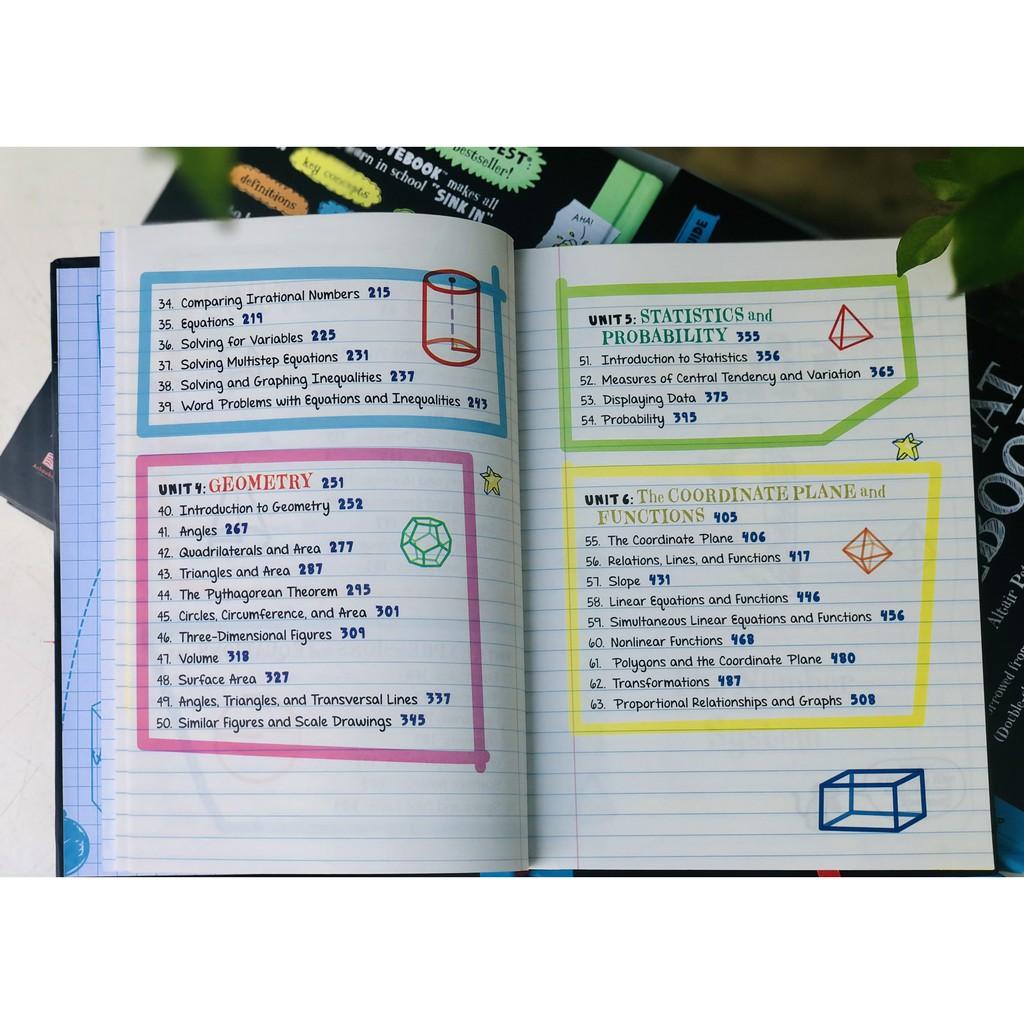 BEST:
bestseller!
key concepts
NOTEBOOK™ makes all
definitions
in school "SINK IN"
AHA!
34. Comparing Irrational Numbers 215
35. Equations 219
36. Solving for Variables 225
37. Solving Multistep Equations 231
38. Solving and Graphing Inequalities 237
39. Word Problems with Equations and Inequalities 243
UNIT 4: GEOMETRY 251
40. Introduction to Geometry 252
41. Angles 267
42. Quadrilaterals and Area 277
43. Triangles and Area 287
44. The Pythagorean Theorem 295
45. Circles, Circumference, and Area 301
46. Three-Dimensional Figures 309
47. Volume 318
48. Surface Area 327
49. Angles, Triangles, and Transversal Lines 337
50. Similar Figures and Scale Drawings 345
UNIT 5: STATISTICS and
PROBABILITY 355
51. Introduction to Statistics 356
52. Measures of Central Tendency and Variation 365
53. Displaying Data 375
54. Probability 395
UNIT 6: The COORDINATE PLANE and
FUNCTIONS 405
55. The Coordinate Plane 406
56. Relations, Lines, and Functions 417
57. Slope 431
58. Linear Equations and Functions 446
59. Simultaneous Linear Equations and Functions 456
60. Nonlinear Functions 468
61. Polygons and the Coordinate Plane 480
62. Transformations 487
63. Proportional Relationships and Graphs 508
Altair
(Double